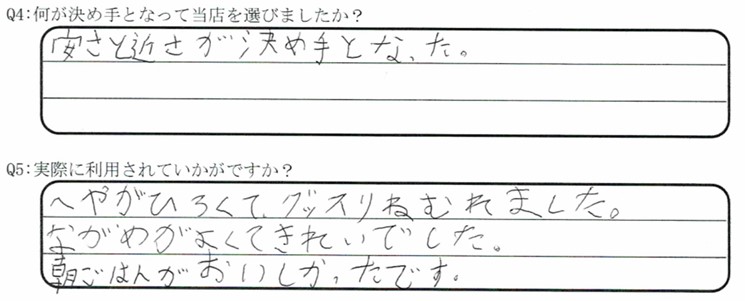 Q4:何が決め手となって当店を選びましたか？
安さと近さが決め手となった。
Q5:実際に利用されていかがですか？
へやがひろくて、グッスリねむれました。
ながめがよくてきれいでした。
朝ごはんがおいしかったです。